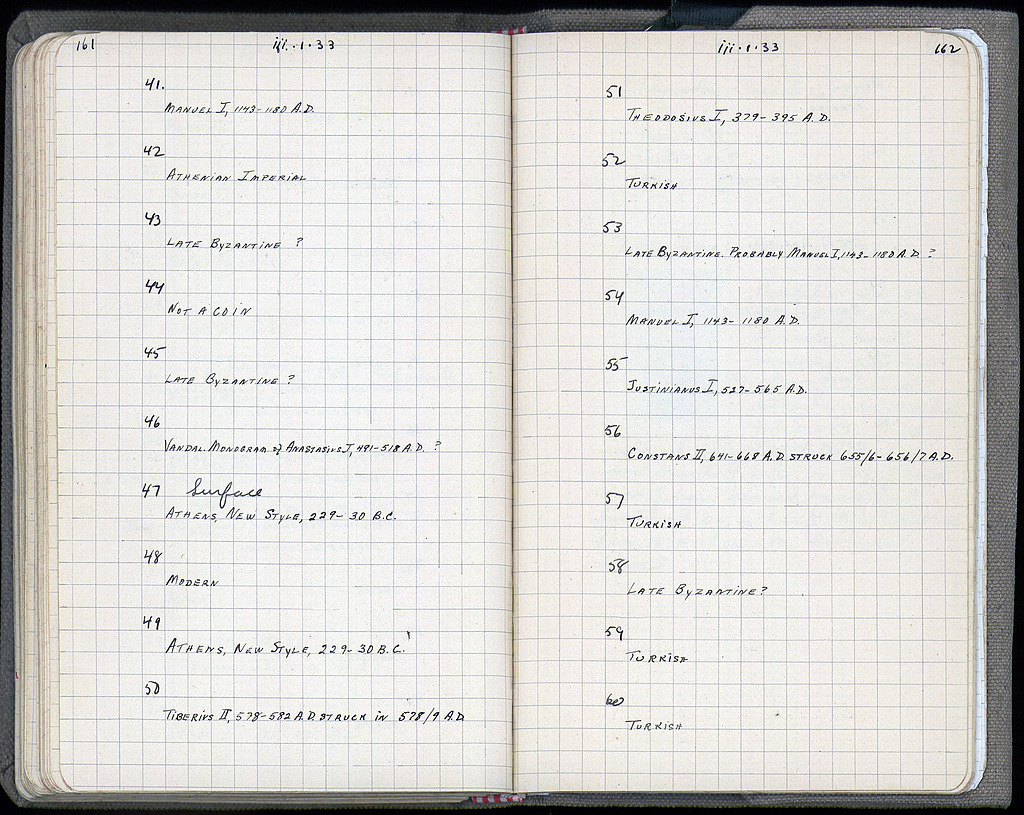 161
iii.·1·33
41.
MANUEL I, 1143-1180 A.D.
42
ATHENIAN IMPERIAL
43
LATE BYZANTINE ?
44
NOT A COIN
45
LATE BYZANTINE ?
46
VANDAL. MONOGRAM of ANASTASIUS I, 491-518 A.D. ?
47 Surface
ATHENS, NEW STYLE, 229-30 B.C.
48
MODERN
49
ATHENS, NEW STYLE, 229-30 B.C.
50
TIBERIUS II, 578-582 A.D. STRUCK IN 578/9 A.D
iii·1·33
162
51
THEODOSIUS I, 379-395 A.D.
52
TURKISH
53
LATE BYZANTINE. PROBABLY MANUEL I, 1143-1180 A.D. ?
54
MANUEL I, 1143-1180 A.D.
55
JUSTINIANUS I, 527-565 A.D.
56
CONSTANS II, 641-668 A.D. STRUCK 655/6-656/7 A.D.
57
TURKISH
58
LATE BYZANTINE?
59
TURKISH
60
TURKISH